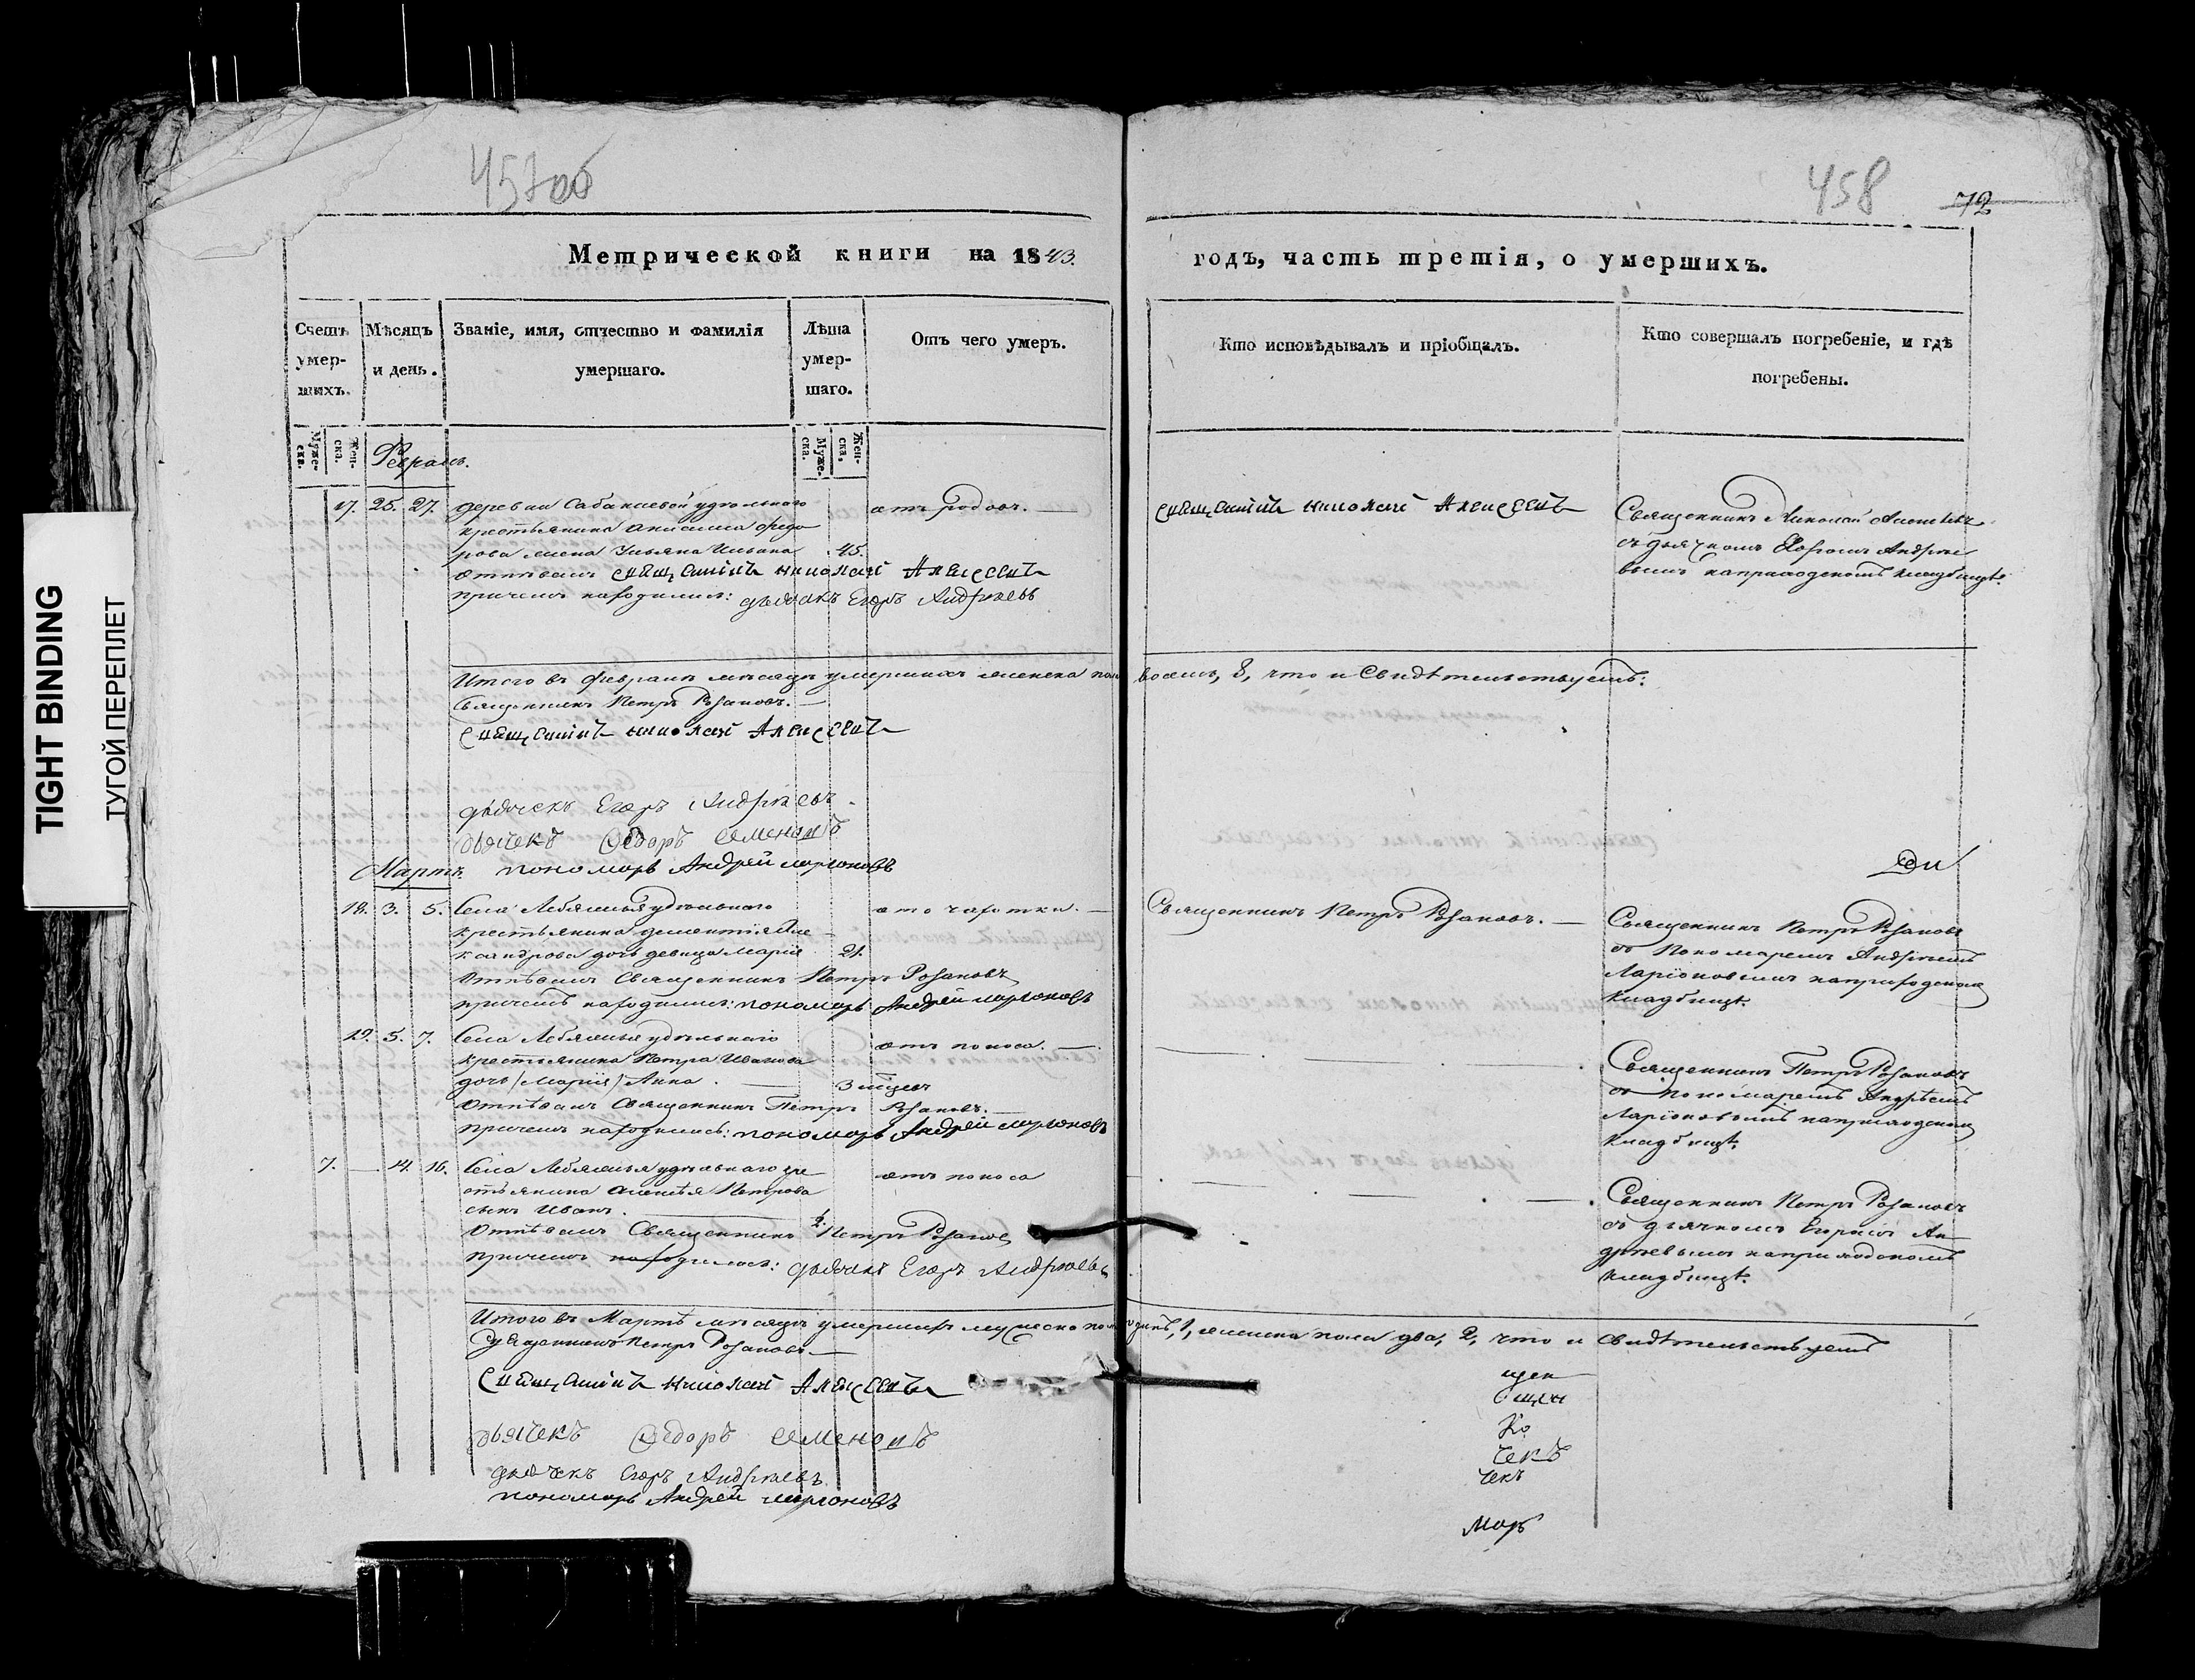 TIGHT BINDING
ТУГОЙ ПЕРЕПЛЕТ
457об
458
72
Метрической книги на 1843.
годъ, часть третія, о умершихъ.
Счетъ умер-шихъ.
Мѣсяцъ и день.
Званіе, имя, отчество и фамилія умершаго.
Лѣта умер-шаго.
Отъ чего умеръ.
Кто исповѣдывалъ и пріобщалъ.
Кто совершалъ погребеніе, и гдѣ погребены.
Муже-ска.
Жен-ска.
Муже-ска.
Жен-ска.
Февраль.
17. 25. 27. деревни Сабакаевой удѣльнаго
крестьянина Анисима Федо
рова жена Ульяна Ильина 45.
отъ родовъ.
отпѣвалъ священникъ Николай Алексеевъ
причемъ находился: дьячекъ Егоръ Андреевъ
священникъ Николай Алексеевъ
Священникъ Николай Алексѣевъ
съ дьячкомъ Егоромъ Андрѣе
вымъ наприходскомъ кладбищѣ.
Итого въ февралѣ мѣсяцѣ умершихъ женска пола восемь, 8, что и свидѣтельствуемъ:
Священникъ Петръ Розановъ.
Священникъ Николай Алексеевъ
дьячекъ Егоръ Андреевъ
дьячекъ Федоръ Семеновъ
пономарь Андрей Ларионовъ
Мартъ.
18. 3. 5. Села Лебяжья удѣльнаго
крестьянина Дементія Але
ксандрова дочь девица Марія 21.
отъ чахотки.
отпѣвалъ Священникъ Петръ Розановъ
причемъ находился: пономарь Андрей Ларионовъ
Священникъ Петръ Розановъ.
Священникъ Петръ Розановъ
съ Пономаремъ Андреемъ
Ларіоновымъ наприходском
кладбищѣ.
19. 5. 7. Села Лебяжья удѣльнаго
крестьянина Петра Иванова
дочь (Марія) Анна. 3 мѣсец
отъ поноса.
отпѣвалъ Священникъ Петръ Розановъ.
причемъ находился: пономарь Андрей Ларионовъ
Священникъ Петръ Розановъ
съ Пономаремъ Андрѣемъ
Ларіоновымъ наприходском
кладбищѣ.
7. 14. 16. Села Лебяжья удѣльнаго кре
стьянина Алексѣя Петрова
сынъ Иванъ.
отъ поноса
отпѣвалъ Священникъ Петръ Розанов
причемъ находился: дьячекъ Егоръ Андреевъ
Священникъ Петръ Розановъ
съ дьячкомъ Егоромъ Ан
дреевымъ наприходскомъ
кладбищѣ.
Итого въ Мартѣ мѣсяцѣ умершихъ мужеска пола одинъ, 1, женска пола два, 2, что и свидѣтельствуемъ
Священникъ Петръ Розановъ
Священникъ Николай Алексеевъ
дьячекъ Федоръ Семеновъ
дьячекъ Егоръ Андреевъ
пономарь Андрей Ларионовъ
щен
щен
Ко
чекъ
чекъ
марь